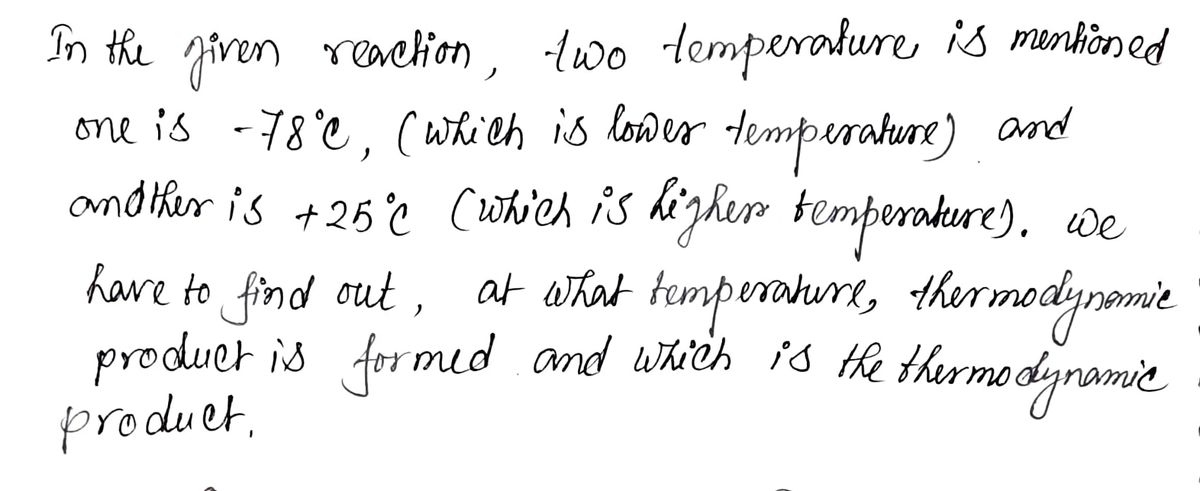 In the given reaction, two temperature is mentioned
one is -78°C, (which is lower temperature) and
another is +25°C (which is higher temperature). we
have to find out, at what temperature, thermodynamic
product is formed and which is the thermodynamic
product.